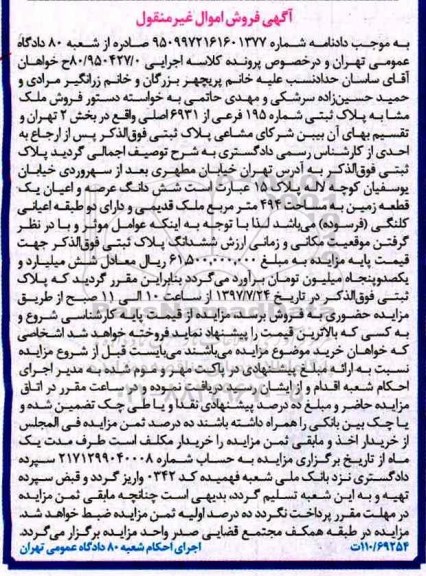 آگهی فروش اموال غیرمنقول
به موجب دادنامه شماره ۹۵۰۹۹۷۲۱۶۱۶۰۱۳۷۷ صادره از شعبه ۸۰ دادگاه
عمومی تهران و درخصوص پرونده کلاسه اجرایی ۸۰/۹۵۰۴۲۷/۰ج خواهان
آقای ساسان حدادنسب علیه خانم پریچهر بزرگان و خانم زرانگیز مرادی و
حمید حسین‌زاده سرشکی و مهدی حاتمی به خواسته دستور فروش ملک
مشا به پلاک ثبتی شماره ۱۹۵ فرعی از ۶۹۳۱ اصلی واقع در بخش ۲ تهران و
تقسیم بهای آن بیین شرکای مشاعی پلاک ثبتی فوق‌الذکر پس از ارجاع به
احدی از کارشناس رسمی دادگستری به شرح توصیف اجمالی گردید پلاک
ثبتی فوق‌الذکر به آدرس تهران خیابان مطهری بعد از سهروردی خیابان
یوسفیان کوچه لاله پلاک ۱۵ عبارت است شش دانگ عرصه و اعیان یک
قطعه زمین به مساحت ۴۹۴ متر مربع ملک قدیمی و دارای دو طبقه اعیانی
کلنگی (فرسوده) می‌باشد لذا با توجه به اینکه عوامل موثر و با در نظر
گرفتن موقعیت مکانی و زمانی ارزش ششدانگ پلاک ثبتی فوق‌الذکر جهت
قیمت پایه مزایده به مبلغ ۶۱,۵۰۰,۰۰۰,۰۰۰ ریال معادل شش میلیارد و
یکصدوپنجاه میلیون تومان برآورد می‌گردد بنابراین مقرر گردید که پلاک
ثبتی فوق‌الذکر در تاریخ ۱۳۹۷/۷/۲۴ از ساعت ۱۰ الی ۱۱ صبح از طریق
مزایده حضوری به فروش برسد مزایده از قیمت پایه کارشناسی شروع و
به کسی که بالاترین قیمت را پیشنهاد نماید فروخته خواهد شد اشخاصی
که خواهان خرید موضوع مزایده می‌باشند می‌بایست قبل از شروع مزایده
نسبت به ارائه مبلغ پیشنهادی در پاکت ملهور و موم شده به مدیر اجرای
احکام شعبه اقدام و از ایشان رسید دریافت نموده و در ساعت مقرر در اتاق
مزایده حاضر و مبلغ ده درصد پیشنهادی نقدا و یا طی چک تضمین شده و
یا چک بین بانکی را همراه داشته باشند ده درصد ثمن مزایده فی المجلس
از خریدار اخذ و مابقی ثمن مزایده را خریدار مکلف است ظرف مدت یک
ماه از تاریخ برگزاری مزایده به حساب شماره ۲۱۷۱۲۹۹۰۴۰۰۰۸ سپرده
دادگستری نزد بانک ملی شعبه فهمیده کد ۰۳۴۲ واریز گردد و قبض سپرده
تهیه و به این شعبه تسلیم گردد، بدیهی است چنانچه مابقی ثمن مزایده
در مهلت مقرر پرداخت نگردد ده درصد اولیه ثمن مزایده ضبط خواهد شد.
مزایده در طبقه همکف مجتمع قضایی صدر واحد مزایده برگزار می‌گردد.
۱۱۰/۶۹۲۵۴ت اجرای احکام شعبه ۸۰ دادگاه عمومی تهران